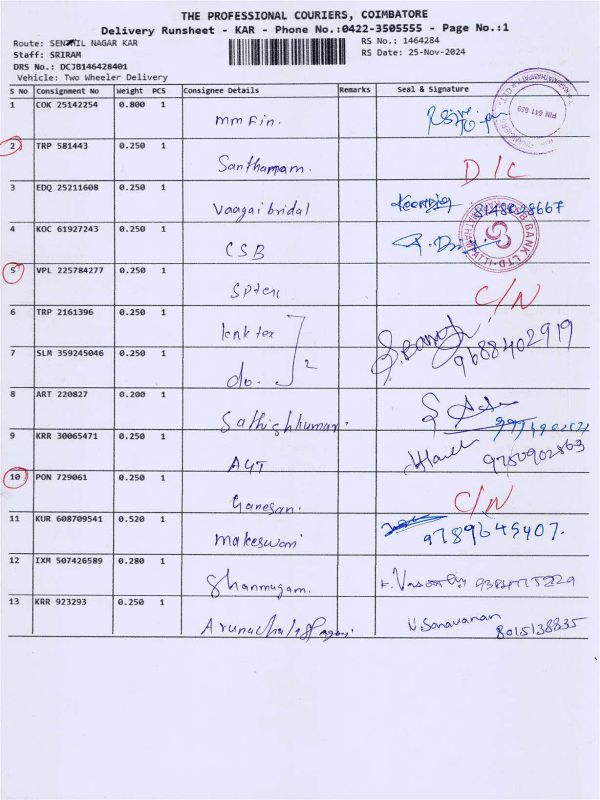 THE PROFESSIONAL COURIERS, COIMBATORE
Delivery Runsheet - KAR - Phone No.:0422-3505555 - Page No.:1
Route: SENTHIL NAGAR KAR
RS No.: 1464284
Staff: SRIRAM
RS Date: 25-Nov-2024
DRS No.: DCJB146428401
Vehicle: Two Wheeler Delivery
S No Consignment No Weight PCS Consignee Details Remarks Seal & Signature
1 COK 25142254 0.800 1 mm Fin.
PIN 641 659
2 TRP 581443 0.250 1 D/C
3 EDQ 25211608 0.250 1 Vaagai bridal
4 KOC 61927243 0.250 1 CSB
B BANK LTD
5 VPL 225784277 0.250 1 C/N
6 TRP 2161396 0.250 1 knk tex
2
9688402919
7 SLM 359245046 0.250 1 do.
8 ART 220827 0.200 1 Sathishkumar.
9 KRR 30065471 0.250 1 9750902863
10 PON 729061 0.250 1 Ganesan. C/N
11 KUR 608709541 0.520 1 makeswari 9789645407.
12 IXM 507426589 0.280 1 Shanmugam.
13 KRR 923293 0.250 1 V. Saravanan
8015138835